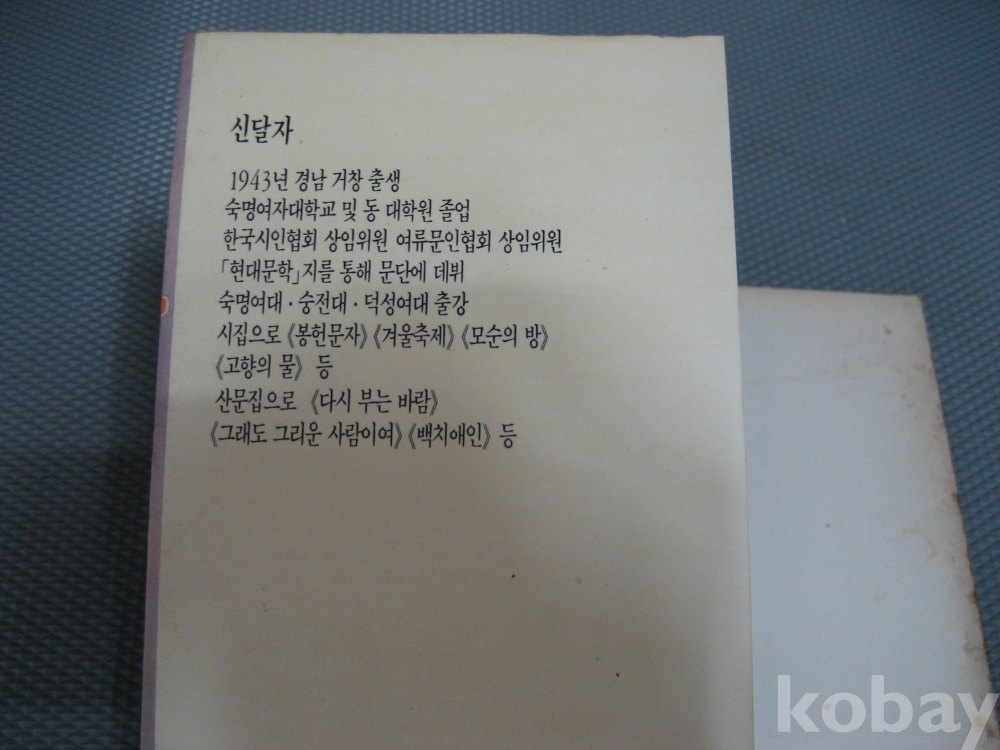 신달자
1943년 경남 거창 출생
숙명여자대학교 및 동 대학원 졸업
한국시인협회 상임위원 여류문인협회 상임위원
「현대문학」지를 통해 문단에 데뷔
숙명여대·숭전대·덕성여대 출강
시집으로 《봉헌문자》《겨울축제》《모순의 방》
《고향의 물》 등
산문집으로 《다시 부는 바람》
《그래도 그리운 사람이여》《백치애인》 등
kobay